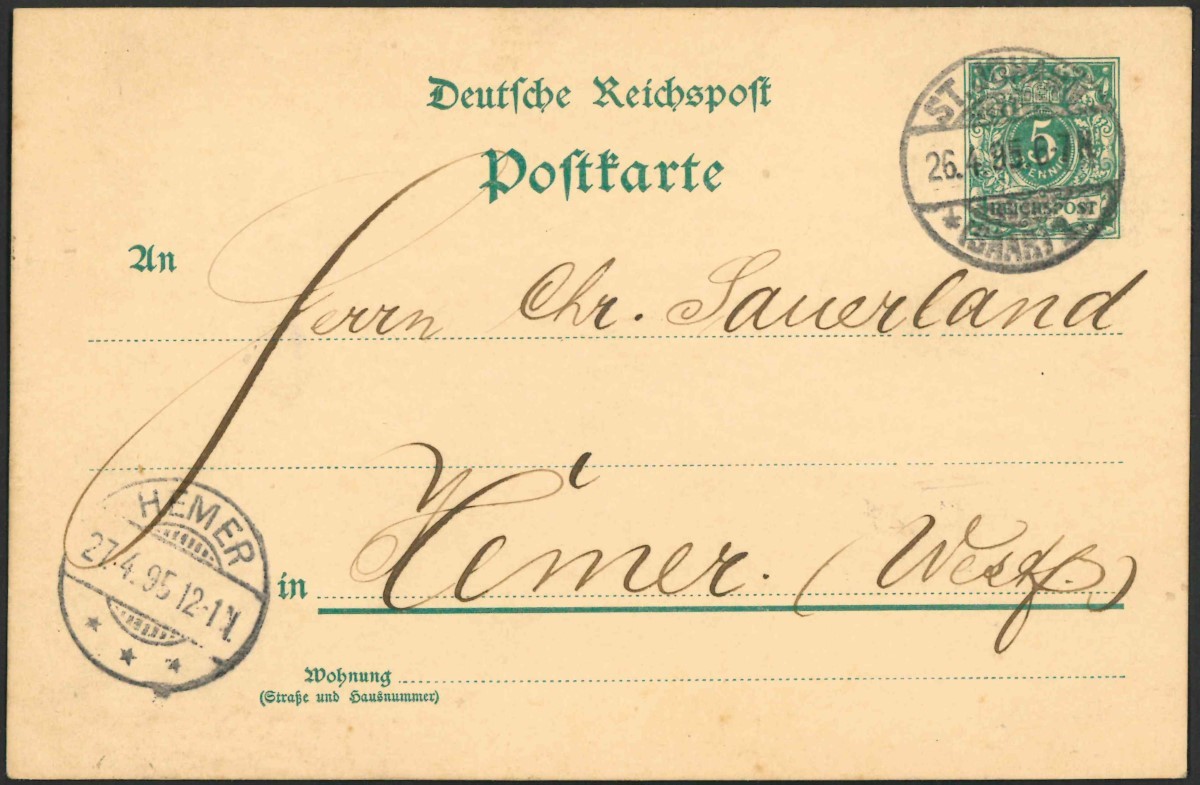 Deutsche Reichspost
Postkarte
26.4.95.6-7N.
5
PFENNIG
REICHSPOST
An
Herrn Chr. Sauerland
HEMER
27.4.95 12-1N.
in Hemer. (Westf.)
Wohnung
(Straße und Hausnummer)